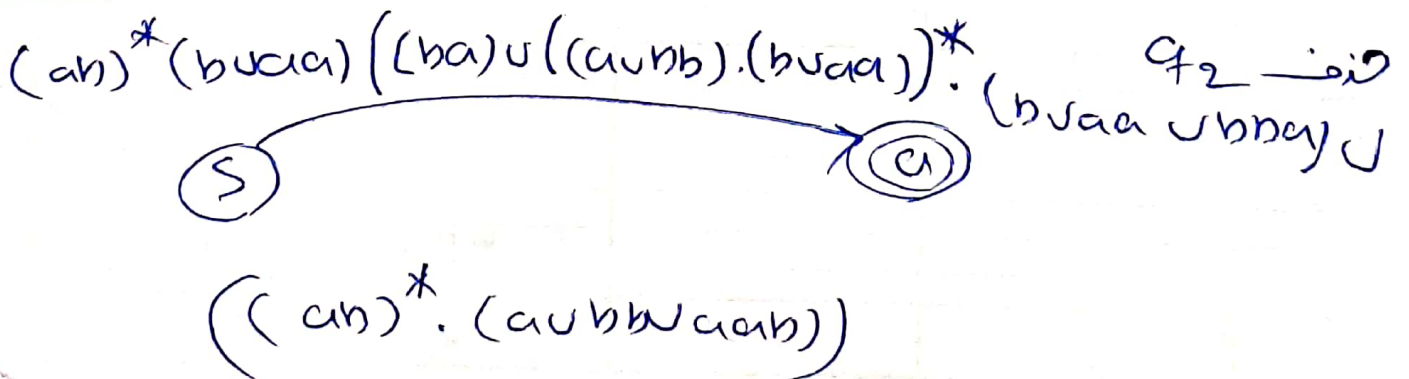 (ab)*(b∪aa)((ba)∪((a∪bb).(b∪aa))*. حذف q2
(b∪aa ∪bba)∪
S a
((ab)*.(a∪bb∪aab))